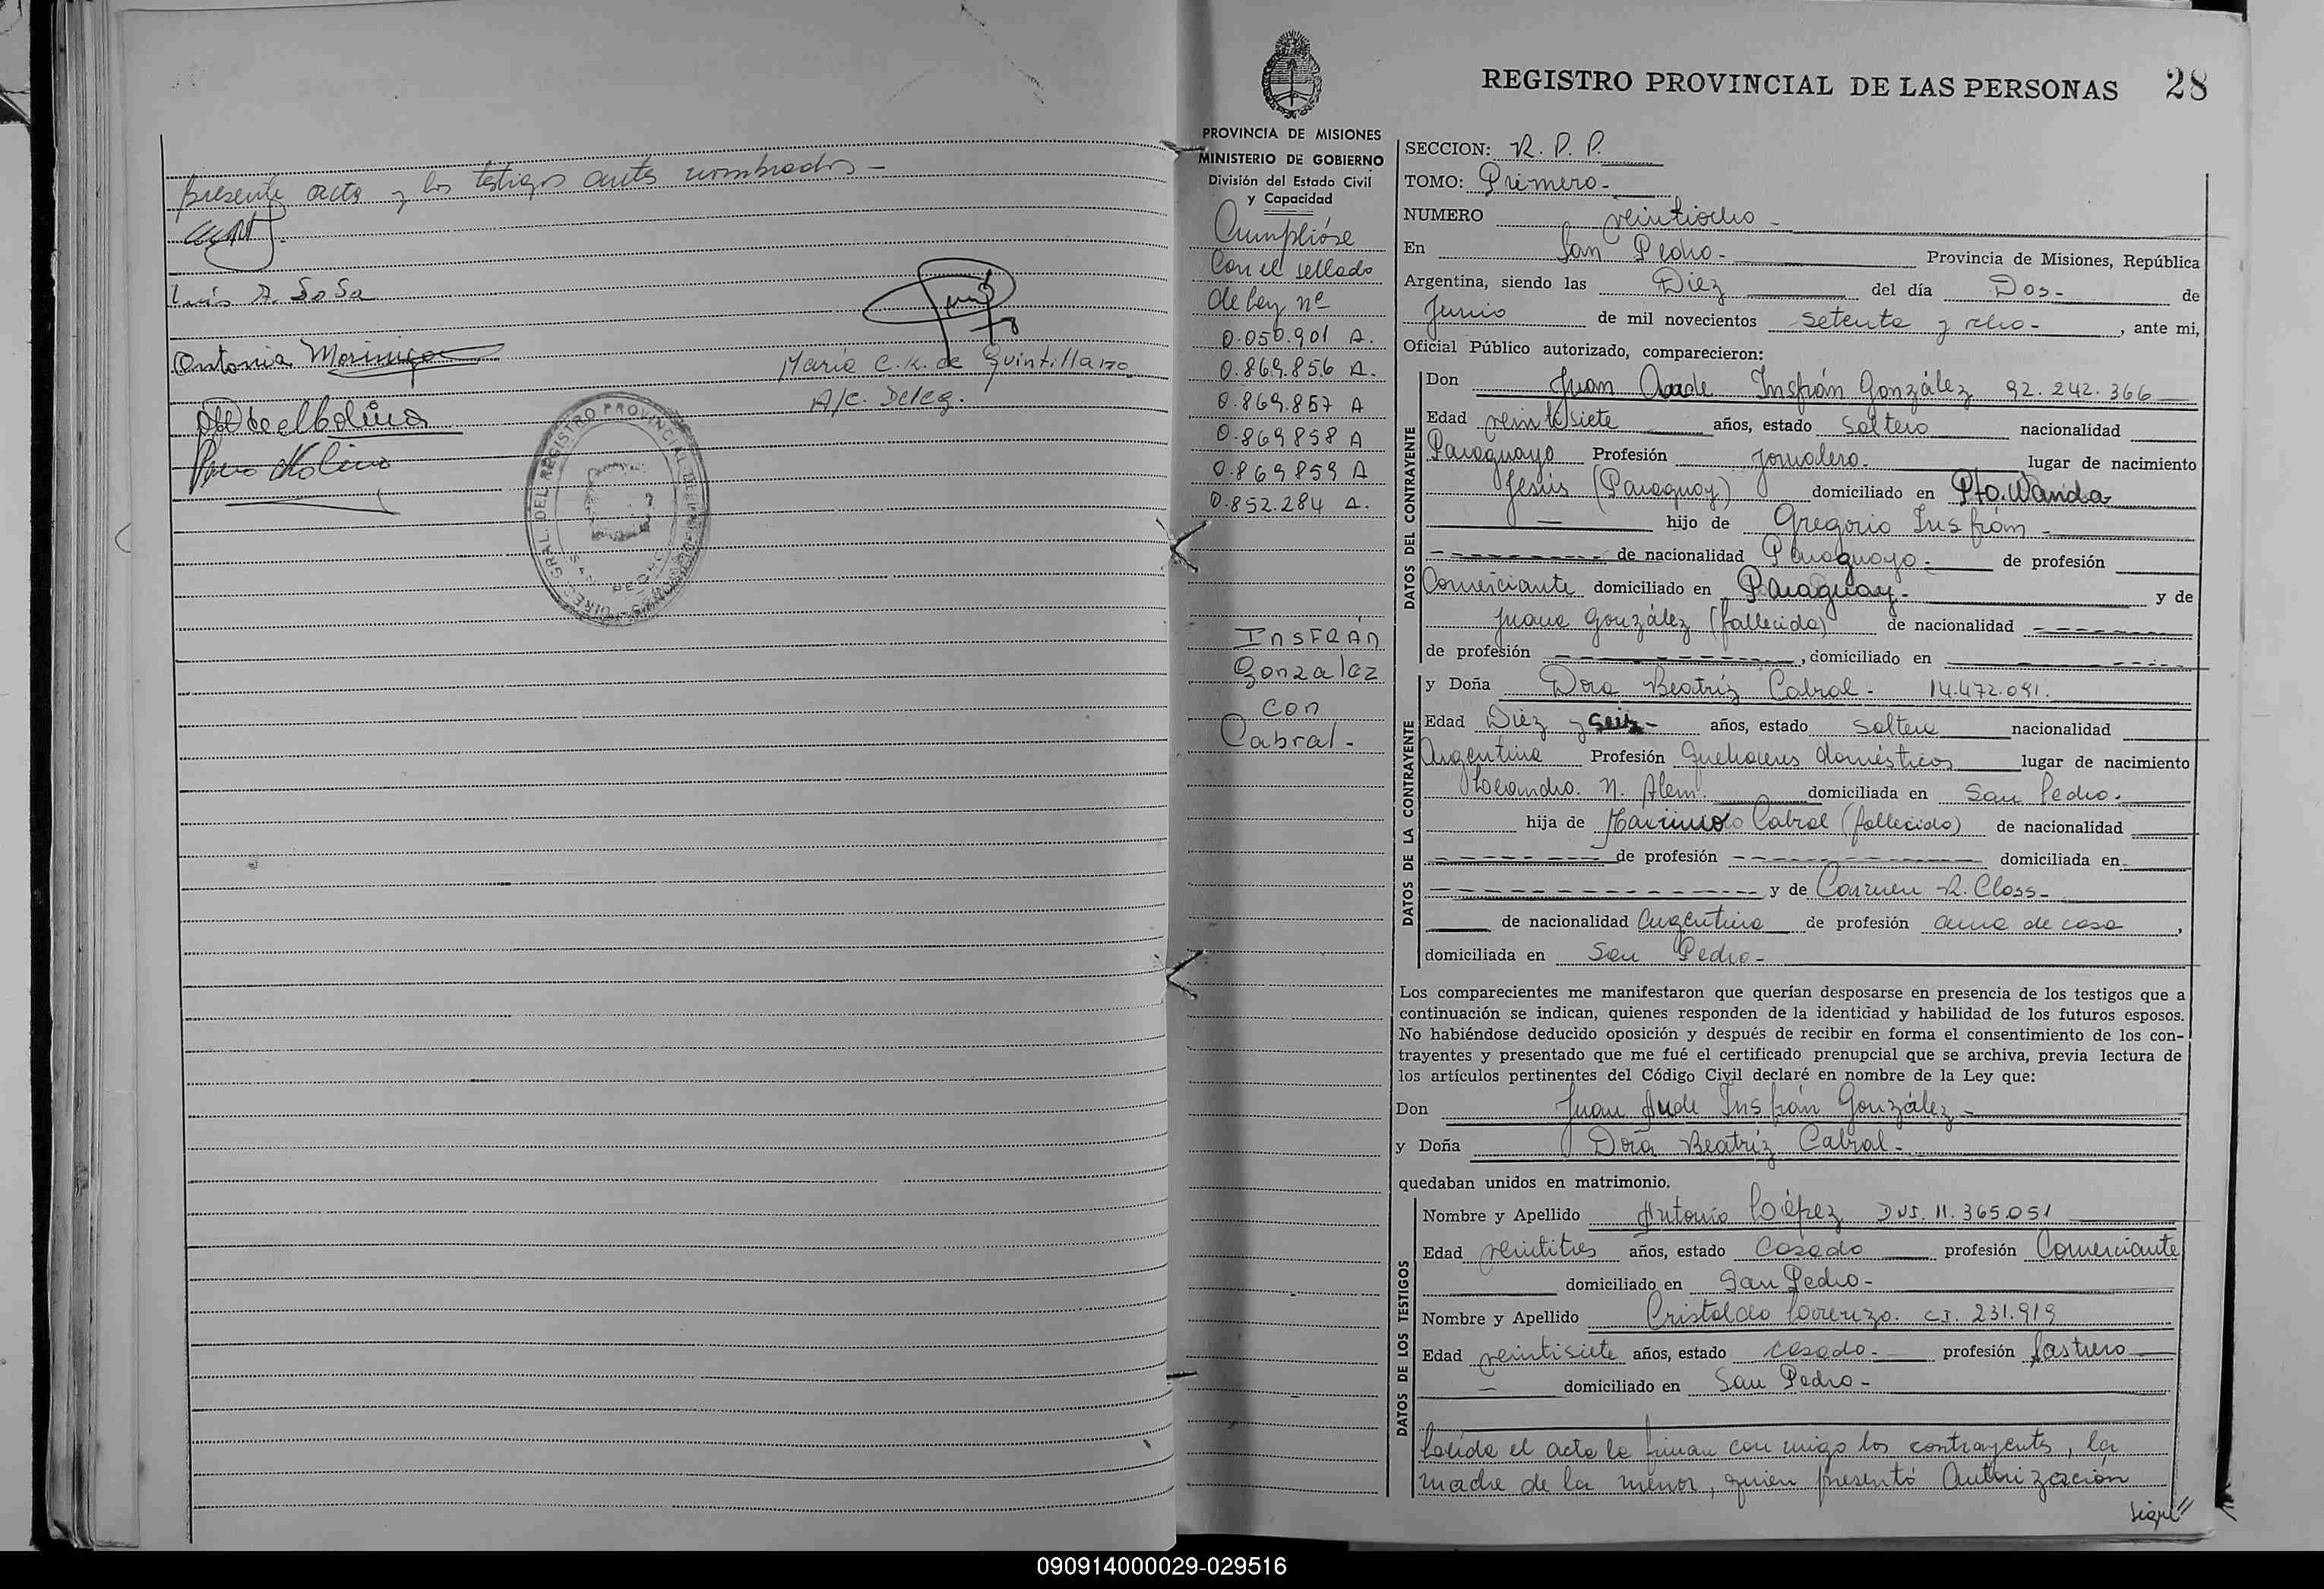 presente acta y los testigos antes nombrados -
Luis A. Sosa
Antonia Morinigo
María C. K. de Quintillano
A/C. Deleg.
REGISTRO PROVINCIAL DE LAS PERSONAS 28
PROVINCIA DE MISIONES
MINISTERIO DE GOBIERNO
División del Estado Civil
y Capacidad
Cumplióse
Con el sellado
de Ley nº
0.050.901 A.
0.869.856 A.
0.869.857 A
0.869858 A
0.869859 A
0.852.284 A.
INSFRÁN
Gonzalez
con
Cabral -
SECCION: R. P. P.
TOMO: Primero -
NUMERO veintiocho -
En San Pedro - Provincia de Misiones, República
Argentina, siendo las Diez del día Dos - de
Junio de mil novecientos setenta y ocho -, ante mi,
Oficial Público autorizado, comparecieron:
DATOS DEL CONTRAYENTE
Don Juan Insfrán González 92.242.366
Edad veintisiete años, estado soltero nacionalidad
Paraguayo Profesión Jornalero. lugar de nacimiento
Jesús (Paraguay) domiciliado en Pto. Wanda
hijo de Gregorio Insfrán -
de nacionalidad Paraguayo - de profesión
Comerciante domiciliado en Paraguay - y de
Juana González (fallecida) de nacionalidad
de profesión , domiciliado en
DATOS DE LA CONTRAYENTE
y Doña Dora Beatríz Cabral - 14.472.091.
Edad Diéz y seis - años, estado soltera nacionalidad
Argentina Profesión Quehaceres domésticos lugar de nacimiento
Leandro. N. Alem. domiciliada en San Pedro.
hija de Maximo Cabral (fallecido) de nacionalidad
de profesión domiciliada en
y de Carmen R. Closs -
de nacionalidad Argentina de profesión ama de casa ,
domiciliada en San Pedro -
Los comparecientes me manifestaron que querían desposarse en presencia de los testigos que a
continuación se indican, quienes responden de la identidad y habilidad de los futuros esposos.
No habiéndose deducido oposición y después de recibir en forma el consentimiento de los con-
trayentes y presentado que me fué el certificado prenupcial que se archiva, previa lectura de
los artículos pertinentes del Código Civil declaré en nombre de la Ley que:
Don Juan Aude Insfrán González -
y Doña Dora Beatríz Cabral -
quedaban unidos en matrimonio.
DATOS DE LOS TESTIGOS
Nombre y Apellido Antonio López DNI. 11.365.051
Edad veintitres años, estado Casado profesión Comerciante
domiciliado en San Pedro -
Nombre y Apellido Cristaldo Lorenzo. CI. 231.919
Edad veintisiete años, estado casado - profesión Sastrero
domiciliado en San Pedro -
Leída el acta la firman con migo los contrayentes, la
madre de la menor, quien presentó Autorización
Sigue //
090914000029-029516